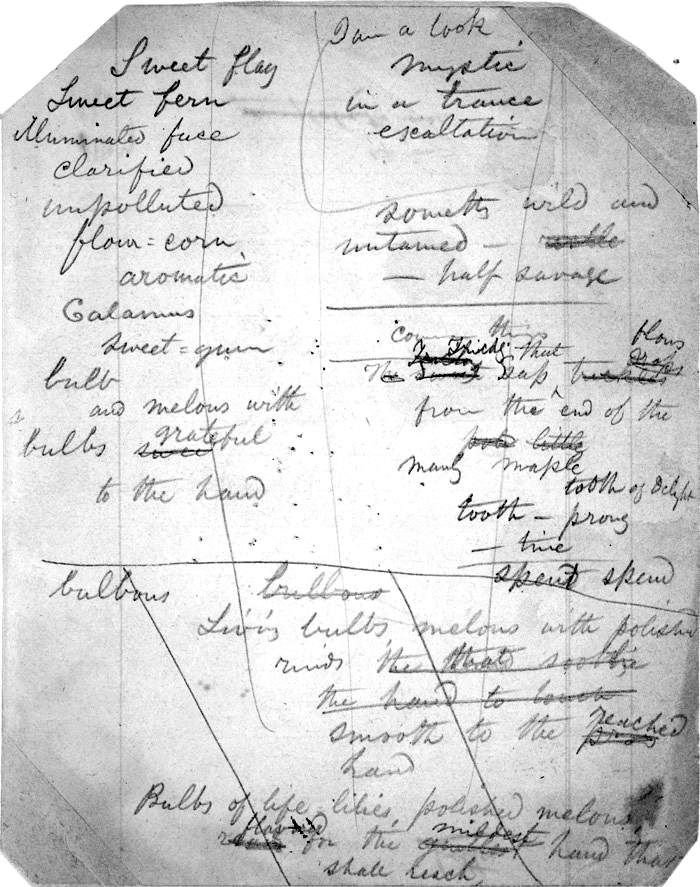 Sweet flag
Sweet fern
illuminated face
clarified
unpolluted
flour=corn
aromatic
Calamus
sweet=gum
bulb
and melons with
bulbs swee grateful
to the hand
I am a look
mystic
in a trance
exaltation
something wild and
untamed —
— half savage
things
Trickly
that
flows
The sweet sap
from the end of the
little
manly maple
tooth of delight
tooth — prong
— tine
spent spend
bulbous bulbous
Living bulbs, melons with polished
rinds the that soothe
the hand to touch
smooth to the reached
hand
Bulbs of life lilies, polished melons
flavored for the mildest hand that
shall reach